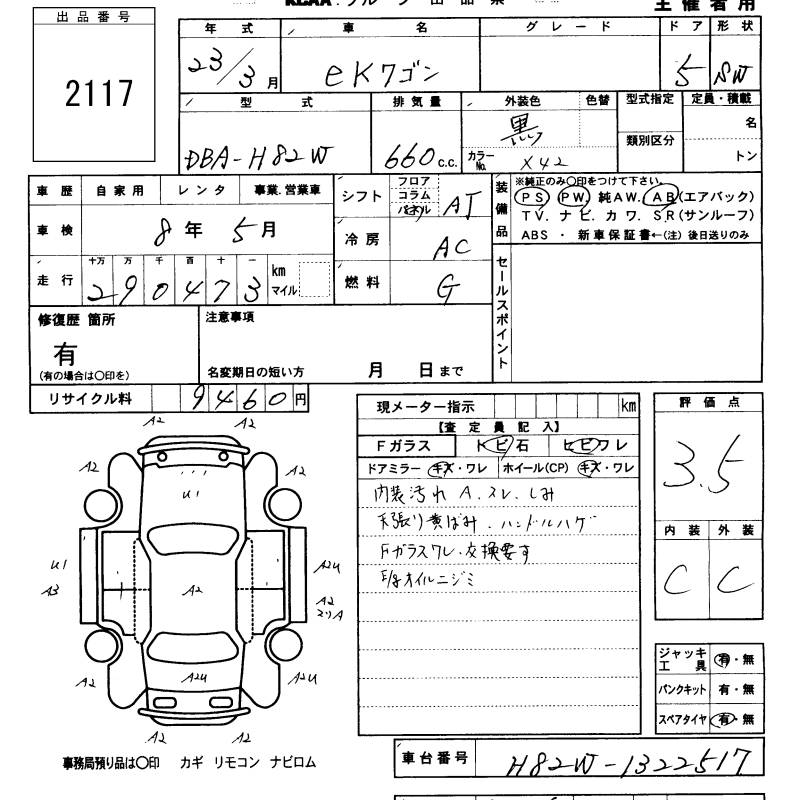 KCAA.グループ 出品票
主催者用
出品番号
2117
年式 車名 グレード ドア 形状
23/3月 eKワゴン 5 SW
型式 排気量 外装色 色替 型式指定 定員・積載
DBA-H82W 660c.c. 黒 類別区分 名
カラーNo. X42 トン
車歴 自家用 レンタ 事業.営業車
車検 8年 5月
走行 十万 万 千 百 十 一 km マイル
290473
シフト フロア コラム パネル AT
冷房 AC
燃料 G
装備品 ※純正のみ○印をつけて下さい。
PS PW. 純AW. AB(エアバック)
TV. ナビ. カワ. SR(サンルーフ)
ABS ・ 新車保証書←(注) 後日送りのみ
セールスポイント
修復歴 箇所
有
(有の場合は○印を)
注意事項
名変期日の短い方 月 日まで
リサイクル料 9460円
現メーター指示 km
【査定員記入】
Fガラス トビ石 ヒビワレ
ドアミラー キズ・ワレ ホイール(CP) キズ・ワレ
内装汚れ A.スレ.しみ
天張り黄ばみ.ハンドルハゲ
Fガラスワレ.交換要す
E/gオイルニジミ
評価点
3.5
内装 外装
C C
ジャッキ工具 有・無
パンクキット 有・無
スペアタイヤ 有・無
A2 A2
A2 A2
U1
U1 A2U
A3 A2 A2
A2 A2U A2U
A2 A2
事務局預り品は○印 カギ リモコン ナビロム
車台番号 H82W-1322517